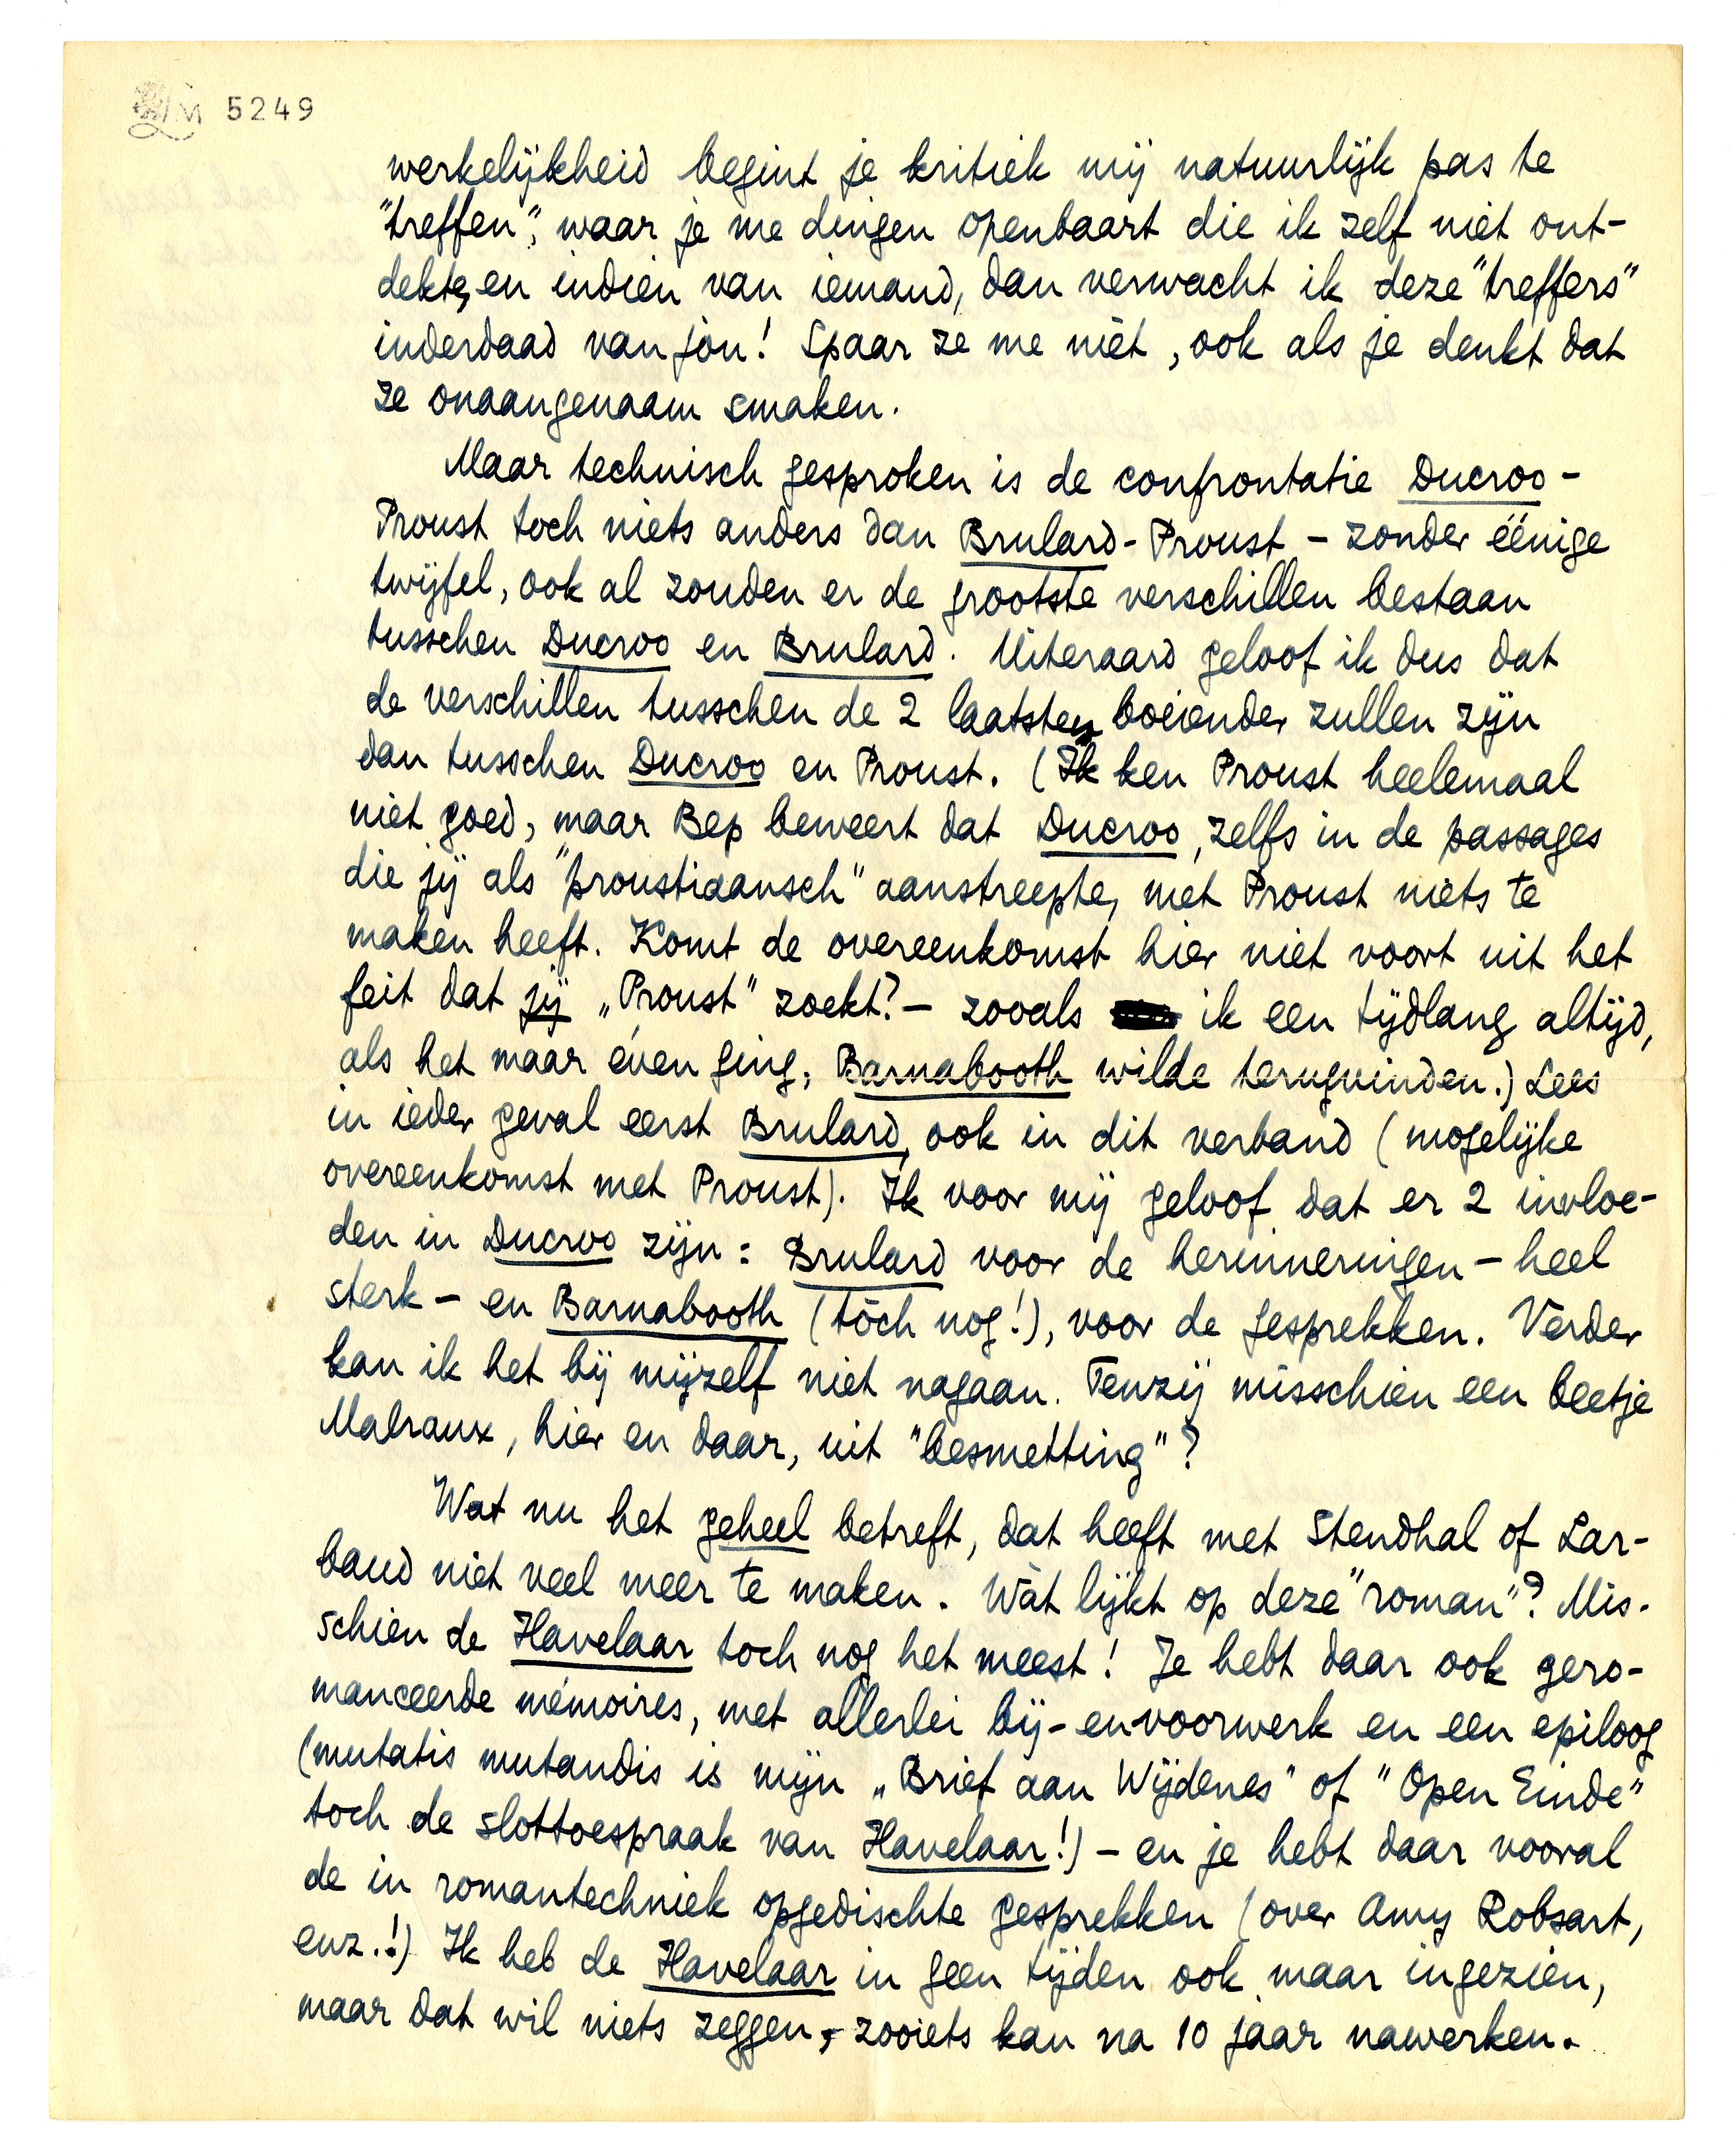 LM 5249
werkelijkheid begint je kritiek mij natuurlijk pas te
"treffen", waar je me dingen openbaart die ik zelf niet ont-
dekte, en indien van iemand, dan verwacht ik deze "treffers"
inderdaad van jòu! Spaar ze me niét, ook als je denkt dat
ze onaangenaam smaken.
Maar technisch gesproken is de confrontatie Ducroo-
Proust toch niets anders dan Brulard-Proust – zonder éénige
twijfel, ook al zouden er de grootste verschillen bestaan
tusschen Ducroo en Brulard. Uiteraard geloof ik dus dat
de verschillen tusschen de 2 laatsten boeiender zullen zijn
dan tusschen Ducroo en Proust. (Ik ken Proust heelemaal
niet goed, maar Bep beweert dat Ducroo, zelfs in de passages
die jij als "proustiaansch" aanstreepte, met Proust niets te
maken heeft. Komt de overeenkomst hier niet voort uit het
feit dat jij „Proust" zoekt? – zooals ik een tijdlang altijd,
als het maar éven ging, Barnabooth wilde terugvinden.) Lees
in ieder geval eerst Brulard, ook in dit verband (mogelijke
overeenkomst met Proust). Ik voor mij geloof dat er 2 invloe-
den in Ducroo zijn: Brulard voor de herinneringen – heel
sterk – en Barnabooth (tòch nog!), voor de gesprekken. Verder
kan ik het bij mijzelf niet nagaan. Tenzij misschien een beetje
Malraux, hier en daar, uit "besmetting"?
Wat nu het geheel betreft, dat heeft met Stendhal of Lar-
baud niet veel meer te maken. Wàt lijkt op deze "roman"? Mis-
schien de Havelaar toch nog het meest! Je hebt daar ook gero-
manceerde mémoires, met allerlei bij- en voorwerk en een epiloog
(mutatis mutandis is mijn „Brief aan Wijdenes" of "Open Einde"
toch de slottoespraak van Havelaar!) – en je hebt daar vooral
de in romantechniek opgedischte gesprekken (over Amy Robsart,
enz.!) Ik heb de Havelaar in geen tijden ook maar ingezien,
maar dat wil niets zeggen, zooiets kan na 10 jaar nawerken.